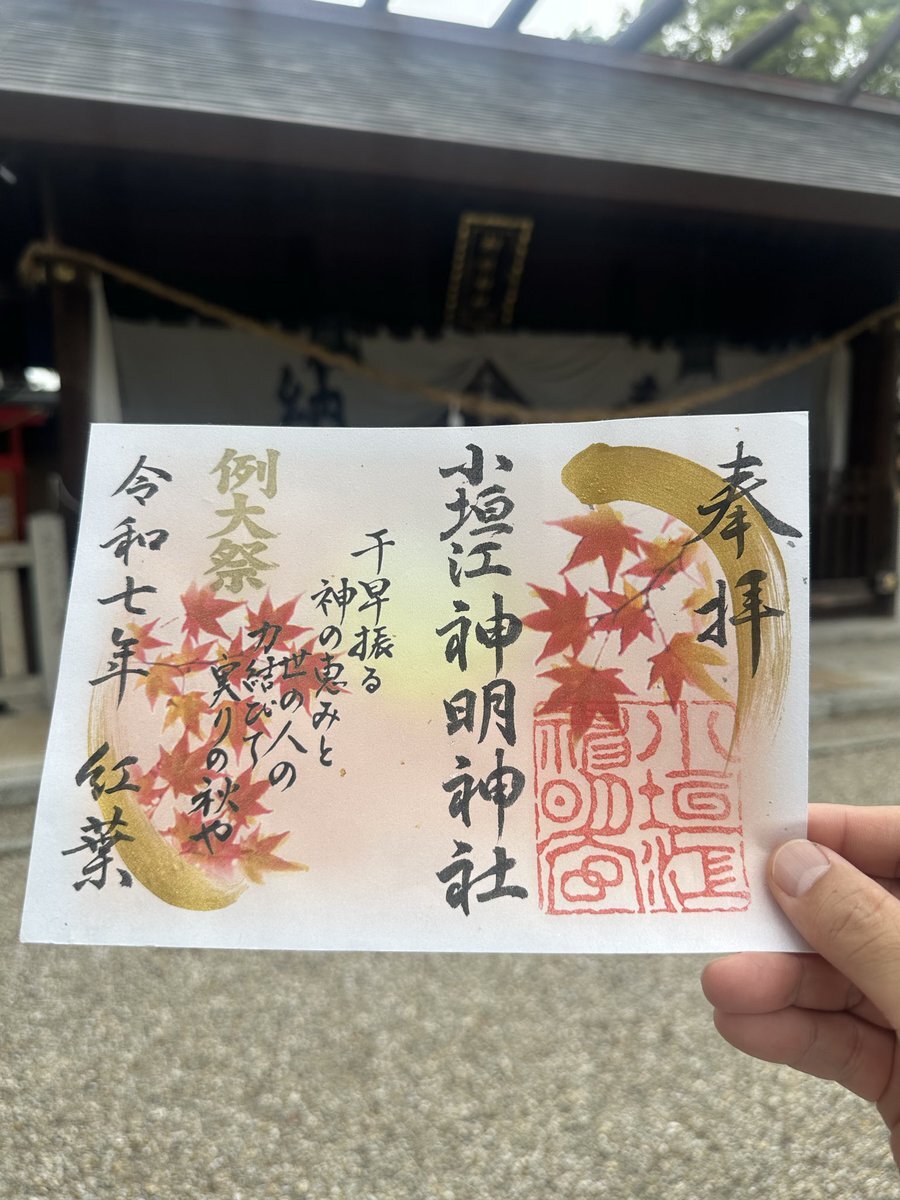 奉拝
小垣江神明神社
小垣江
神明宮
千早振る
神の恵みと
世の人の
力結びて
実りの秋や
例大祭
令和七年 紅葉
納